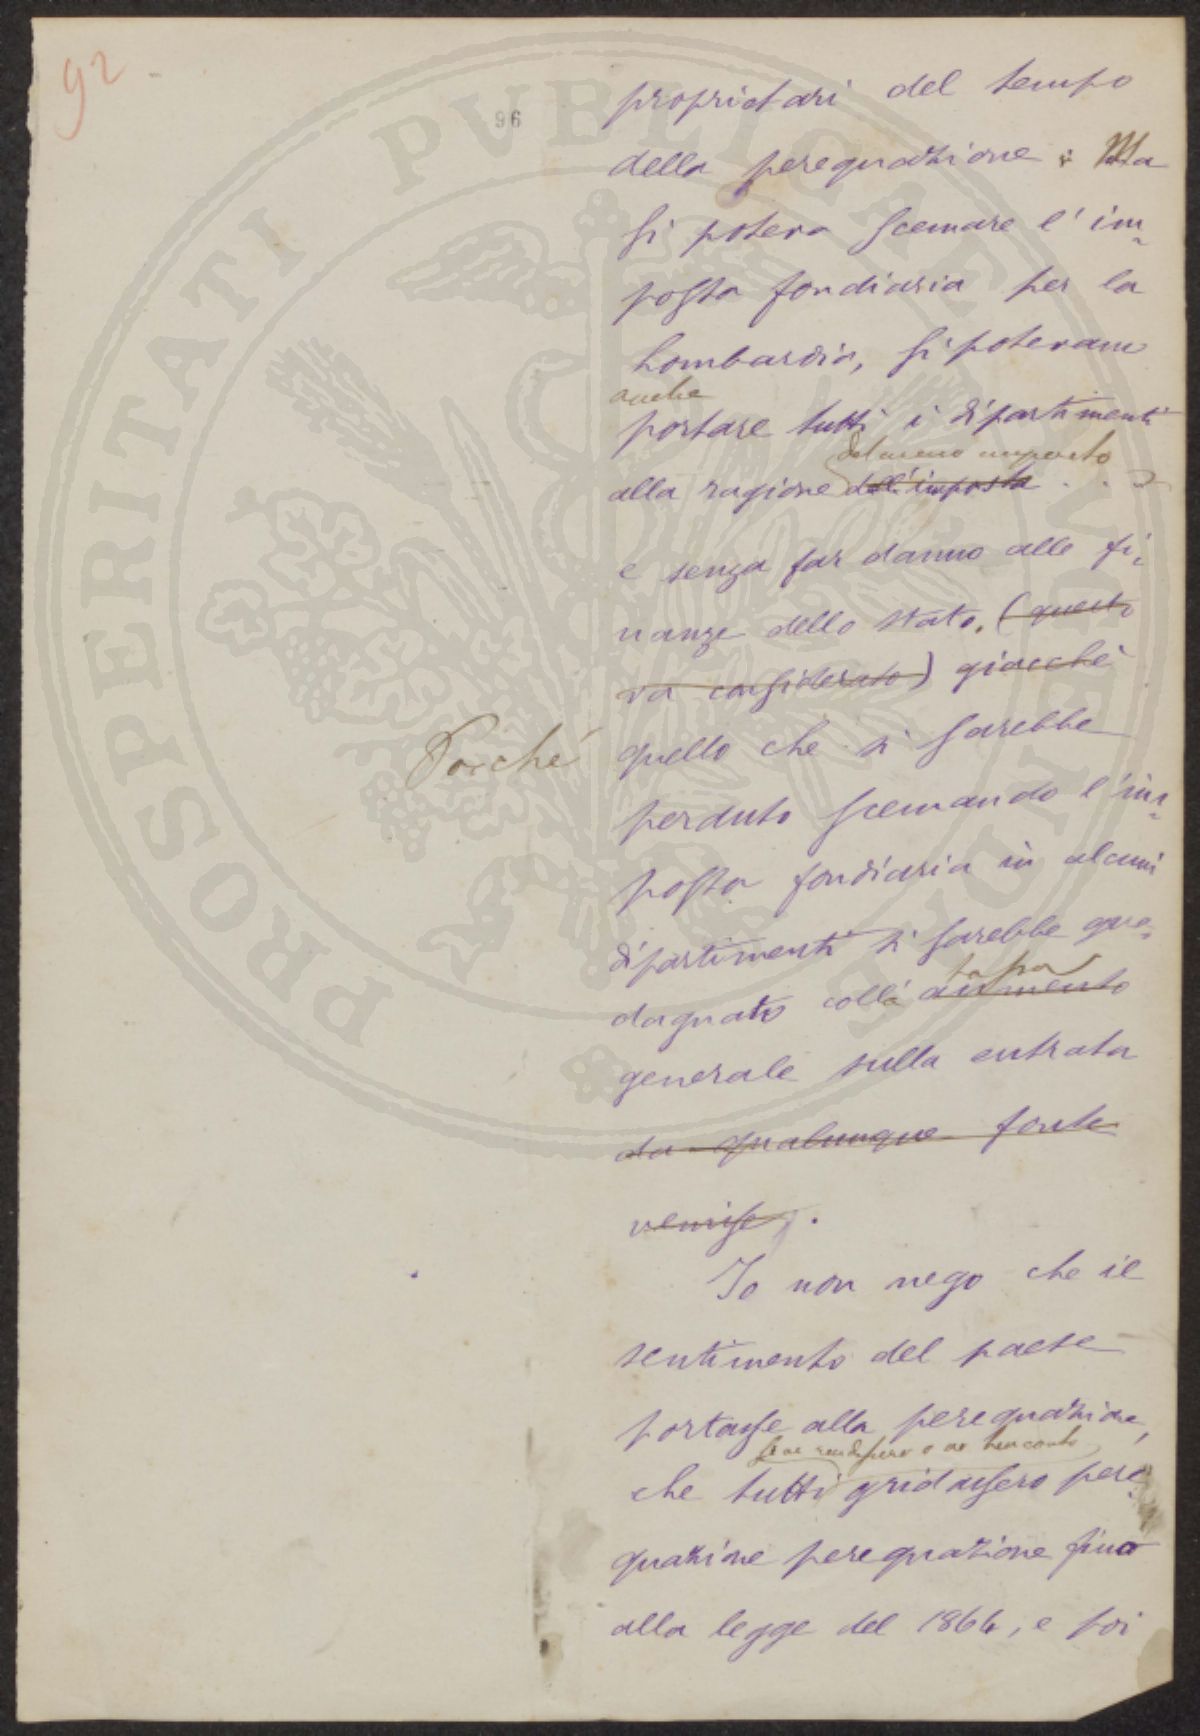 92
96
proprietari del tempo
della perequazione : Ma
si poteva scemare l' im-
posta fondiaria per la
Lombardia, si potevano
anche
portare tutti i dipartimenti
del meno imposto
alla ragione dell'imposta . .
e senza far danno alle fi-
nanze dello stato. (questo
va considerato) giacchè
Poichè
quello che si sarebbe
perduto scemando l'im-
posta fondiaria in alcuni
dipartimenti si sarebbe gua-
dagnato colla aumento
tassa
generale sulla entrata
da qualunque fonte
venisse, .
Io non nego che il
sentimento del paese
portasse alla perequazione,
che tutti gridassero pere-
quazione perequazione fino
alla legge del 1864, e poi
PROSPERITATI PVBLICAE